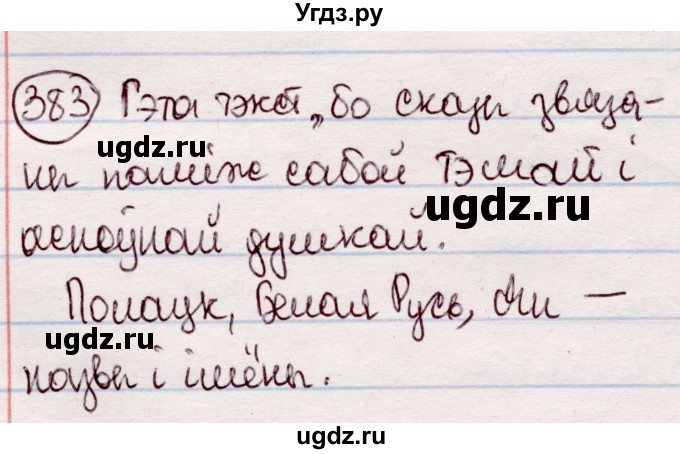 Угдз.ру
383 Гэта тэкст, бо сказы звяза-
ugdz.ru
ны паміж сабой тэмай і
ugdz.ru
асноўнай думкай.
Полацк, Белая Русь,
ugdz.ru
назвы і імёны.
ugdz.ru